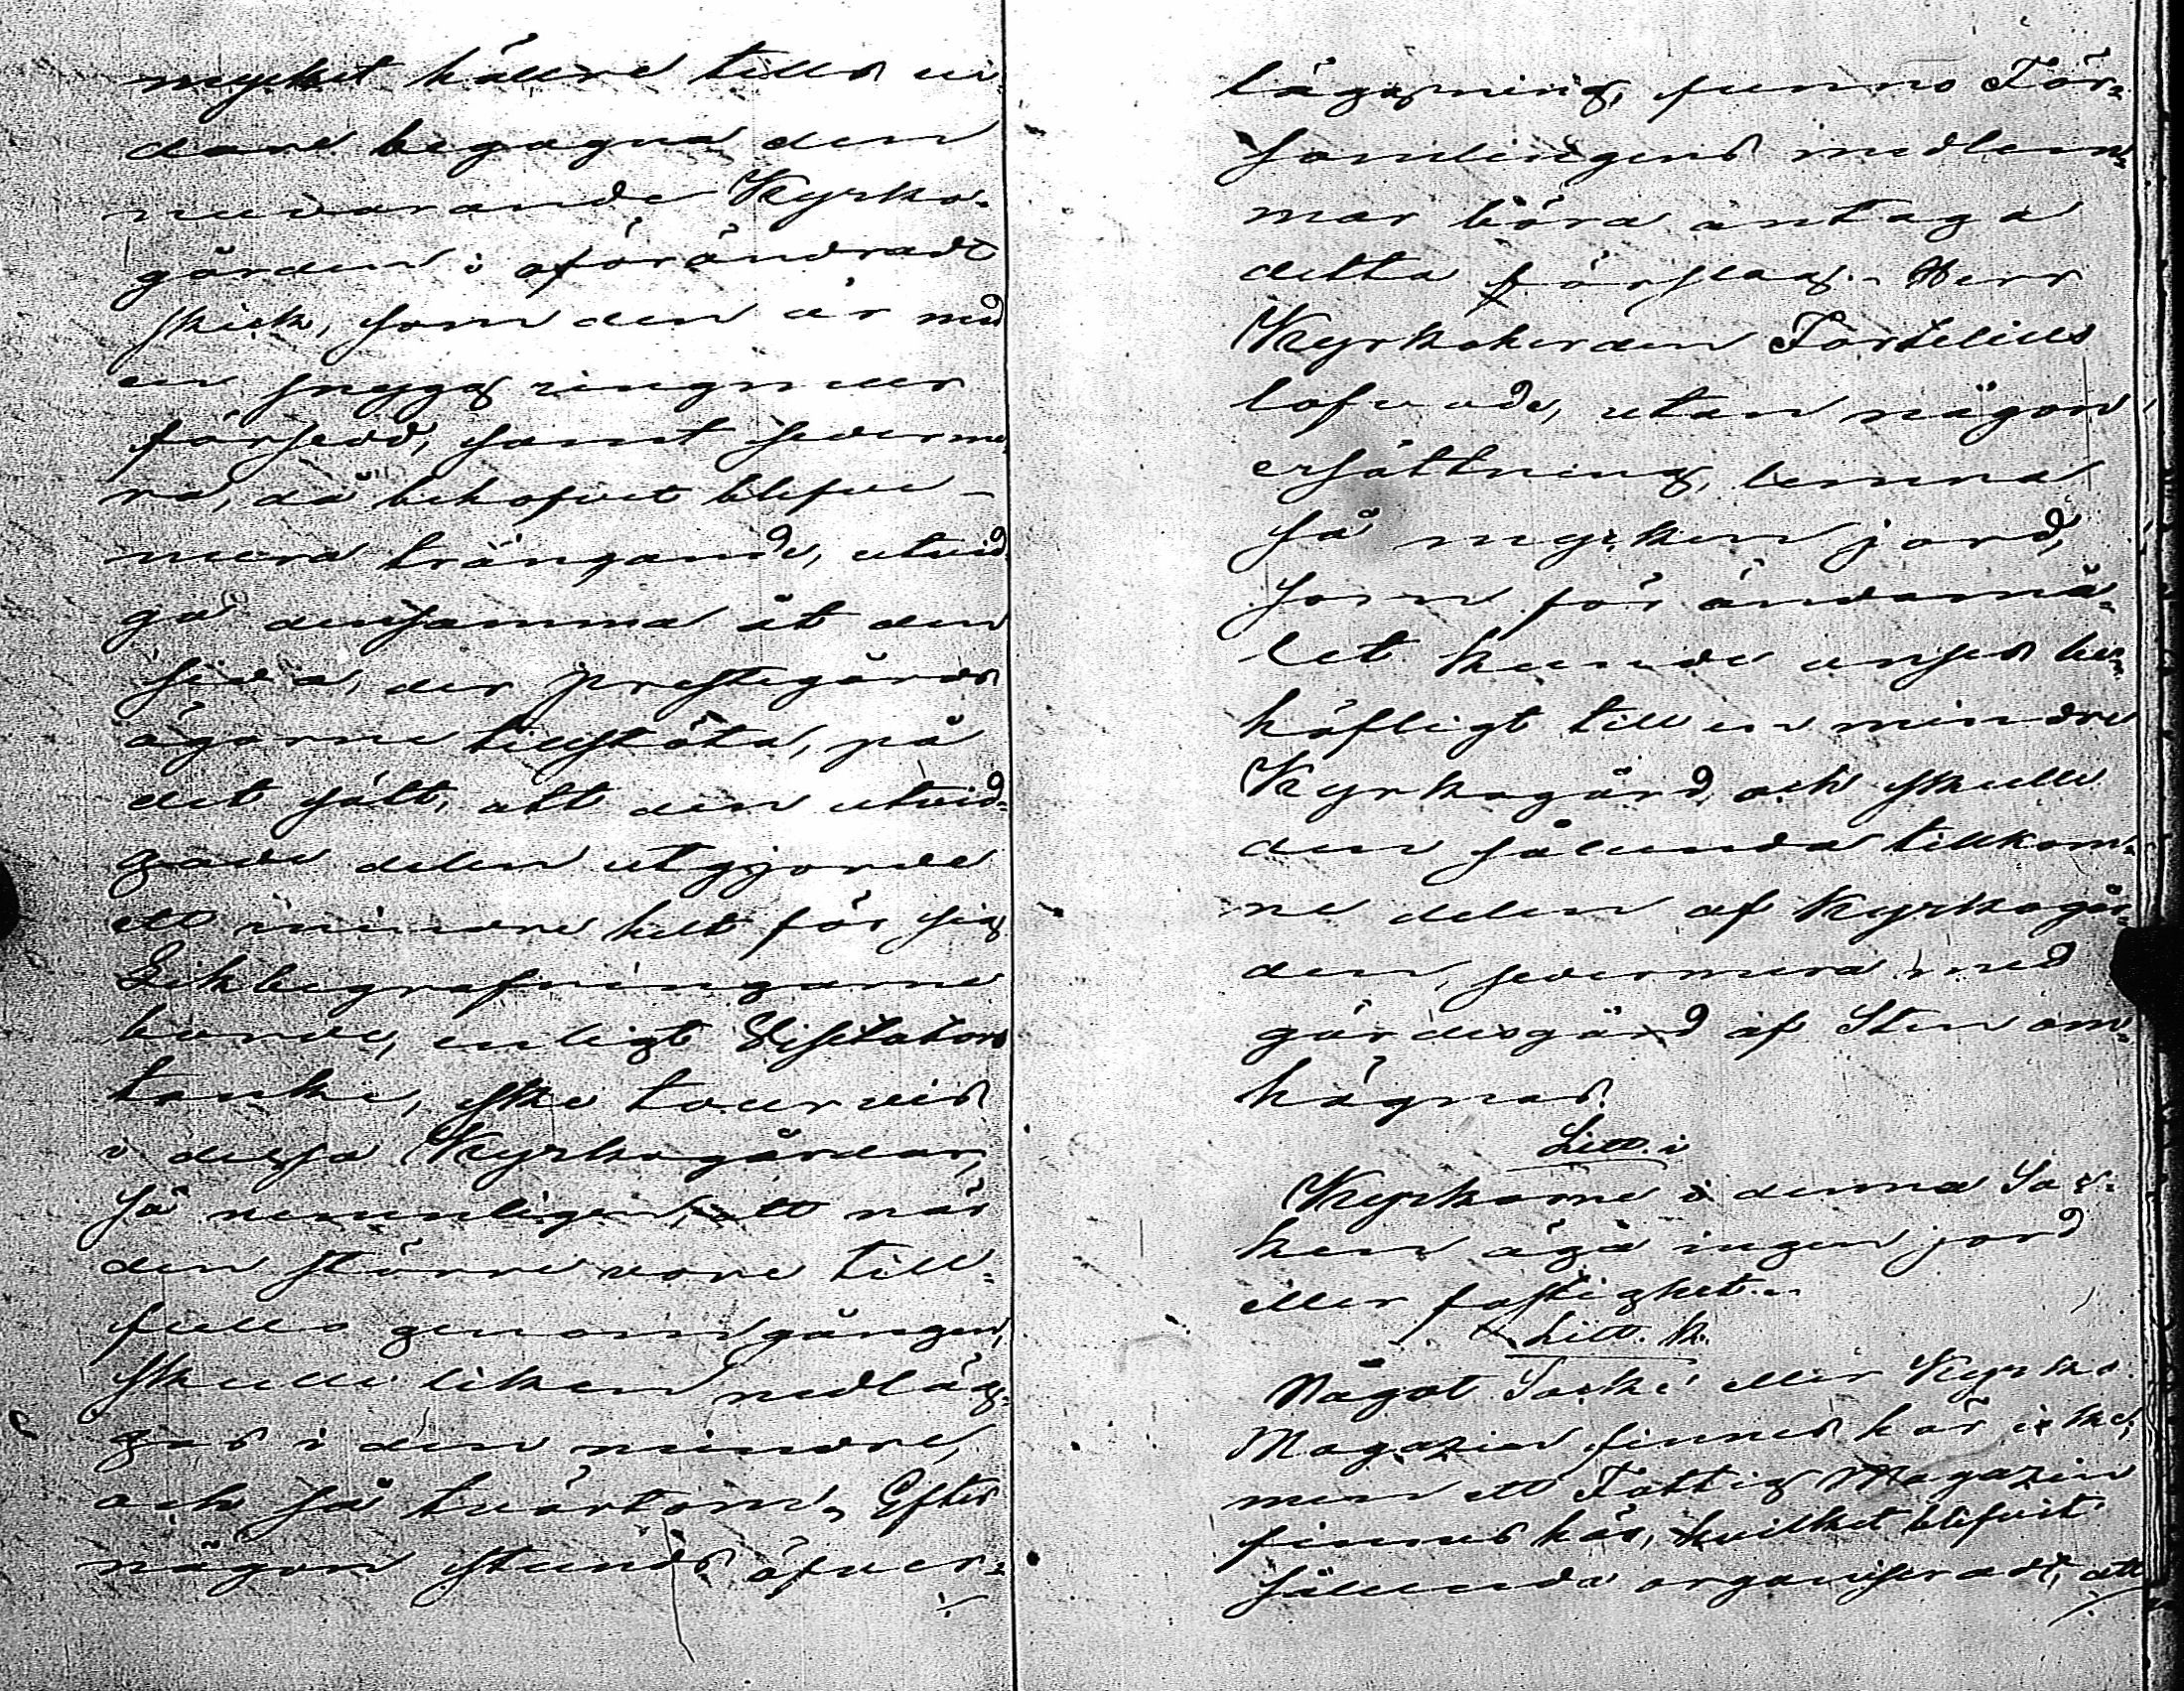 mycket hällre tills vi
dare begagna den
nuvarande Kyrko-
gården i oförändradt
skick, som den är med
en snygg ringmur
försedd, samt sederme
ra, då behofvet blefve –
mera trängande, utvid
ga densamma åt den
sida, der prestegårds
ägorne tillstöta, på
det sätt, att den utvid-
gade delen utgjorde
ett mindre helt för sig
Likbegrafningarne
borde, enligt Visitators
tanke, ske tourvis
i dessa Kyrkogårdar,
så nemligen, att när
den större vore till-
fullo genomgången,
skulle liken nedläg-
gas i den mindre,
och så tvärtom. Efter
någon stunds öfver-
läggning, funno För-
samlingens medlem-
mar böra antaga
detta förslag. – Herr
Kyrkoherden Fortelius
lofvade, utan någon
ersättning, lemna
så mycken jord,
som för ändamå-
let kunde anses be-
höfligt till en mindre
Kyrkogård och skulle
den sålunda tillkom-
ne delen af Kyrkogår-
den, sedermera med
gärdesgård af Sten om-
hägnas.
Litt. i
Kyrkorne i denna Soc-
ken äga ingen jord
eller fastighet. –
Litt. k.
Något Socke- eller Kyrko-
Magazin finnes här icke,
men ett Fattig Magazin
finnes här, hvilket blifvit
sålunda organiseradt, att